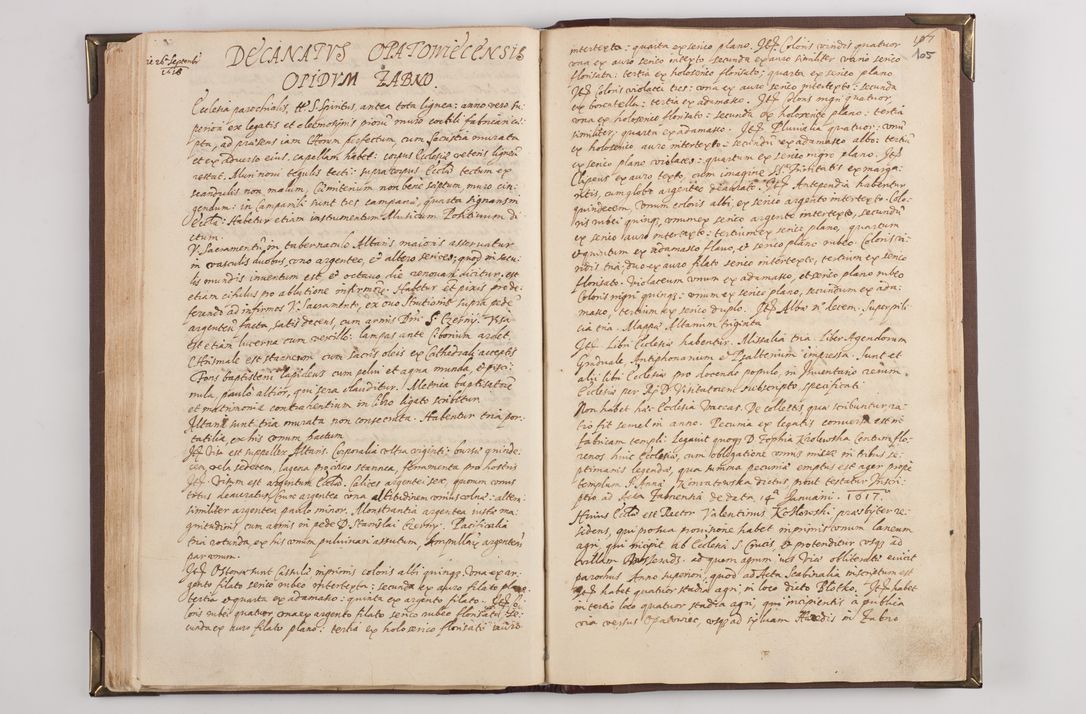 ie 26 Septembr
1618
DECANATVS OPATOVIECENSIS
OPIDVM ZABNO.
Ecclesia parochialis, tt. S. Spiritus antea tota lignea: anno vero su
periori ex legatis et eleemosynis piorum muro cortili fabricari coe
pta, ad praesens iam Chorum perfectum, cum Sacristia murata
et ex adverso eius, capellam habet: corpus Ecclesiae veteris ligneum
restat. Muri novi tegulis tecti: supra corpus Ecclesiae tectum ex
scandulis non malum, Cimiterium non bene septum, muro cin,
gendum: in Campanili sunt tres campanae, quarta signans in
Eccla: Habetur etiam instrumentum Musicum Positivum di
ctum.
V. Sacramentum in tabernaculo Altaris maioris asservatur
in vasculis duobus, uno argenteo, et altero sericeo, quod in secu,
lis mundis inventum est, et octavo die renovari dicitur, est
etiam ciphulus pro ablutione infirmorum: Habetur et pixis pro de,
ferendo ad infirmos V. Sacramento, ex
argentea facta, satis decens, cum armis Dni S. Czerny.
est etiam lucerna cum vexillo: lampas ante Ciborium ardet,
Chrismale est stanneum cum Sacris oleis ex Cathedrali acceptis
Fons baptisterii lapideus cum pelvi et aqua munda, et pisci,
nula paulo altior, qui sera clauditur. Metrica baptisatorum
et matrimonia contrahentium in libro ligato scribitur.
Altaria sunt tria murata non consecrata. Habentur tria por,
tatilia, ex his unum fractum
Itt. Una est suppellex Altaris. Corporalia ultra viginti: bursae quinde,
cem, vela sedecem, lagena pro vino stannea, ferramenta pro hostiis
Itt. Vitrum est argentum Eccliae. Calices argentei sex, quorum unus
totus deauratus, Crux argentea una altitudinem unius ulnae: altera
similiter argentea paulo minor. Monstrantia argentea iustae ma,
gnitudinis cum armis in pede D. Stanislai Czerny. Pacificalia
tria rotunda, ex his unum pulvinari assutum, Ampullae argenteae
par unum.
Itt. Ostorae sunt Casulae inprimis coloris albi quinque. Una ex ar,
gento filato serico rubeo intertexta: secunda ex auro filato plana
tertia et quarta ex adamasco: quinta ex argento filato. Itt. Co
loris rubei quatuor, una ex argento filato serico rubeo florisata: Se,
cunda ex auro filato plano: tertia ex holoserico florisato auro
107
105
intertexto: quarta ex serico plano. Itt. Coloris viridis quatuor
una ex auro serico intexto: secunda ex auro similiter vario serico
florisata: tertia ex holoserico florisato: quarta ex serico plano
Itt. Coloris violacei tres: una ex auro serico intertexto: secunda
ex brocatella: tertia ex adamasco. Itt. Coloris nigri quatuor,
una ex holoserico florisato: secunda ex holoserico plano: tertia
similiter: quarta ex adamasco. Itt. Pluvialia quatuor: unum
ex holoserico auro intertexto: secundum ex adamasco albo: tertium
ex serico plano violaceo: quartum ex serico nigro plano. Itt.
Clipeus ex auro texto, cum imagine SS. Trinitatis ex marga,
ritis, cum globo argenteo deaurato. Itt. Antependia habentur
quindecem, unum coloris albi, ex serico argento intertexto. Colo,
ris rubei quinque, unum ex serico argento intertexto, secundum
ex serico auro intertexto: tertium ex serico plano, quartum
et quintum ex adamasco flavo, et serico plano rubeo. Coloris vi,
ridis tria, duo ex auro filato serico intertexto, tertium ex serico
florisato. Violaceum unum ex adamasco, et serico plano rubeo
Coloris nigri quinque: unum ex serico plano, secundum ex ada:
masco, tertium ex serico duplo. Itt. Albae n° decem. Superpili,
cia tria. Mappae Altarium triginta
Itt. Libri Ecclesiae habentur. Missalia tria. Liber Agendorum
Graduale, Antiphonarium et Psalterium impressa. Sunt et
alii libri Ecclesiae pro docendo populo, in Inventario rerum
Ecclesiae per R. D. Visitatorem subscripto specificati.
Non habet haec Ecclesia vaccas. De collectis quae scribuntur ra,
tio fit semel in anno. Pecunia ex legatis conversa est in
fabricam templi. Legavit quoque D. Sophia Krolewska Centum flo,
renos huic Ecclesiae, cum obligatione unius missae in tribus se,
ptimanis legendae, qua summa pecuniae emptus est ager prope
templum S. Annae Konratowska dictus prout testatur Inscri
ptio ad Acta Zabnensia de data 14a Januarii. 1617.
Huius Ecclae est Rector Valentinus Kozlowski praesbyter re,
sidens, qui pro sua provisione habet inprimis unum laneum
agri, qui incipit ab Ecclesia S. Crucis, et protenditur usque ad
villam Sierads. ad quem agrum ius viae obliteratae evicit
parochus Anno superiori, quod ad Acta Scabinalia inscriptum est
Itt. habet quatuor stadia agri, in loco dicto Błotko, Itt. habet
in tertio loco quatuor stadia agri, qui incipiunt a publica
via versus Opatoviec, usque ad sylvam Haeredis in Zabno